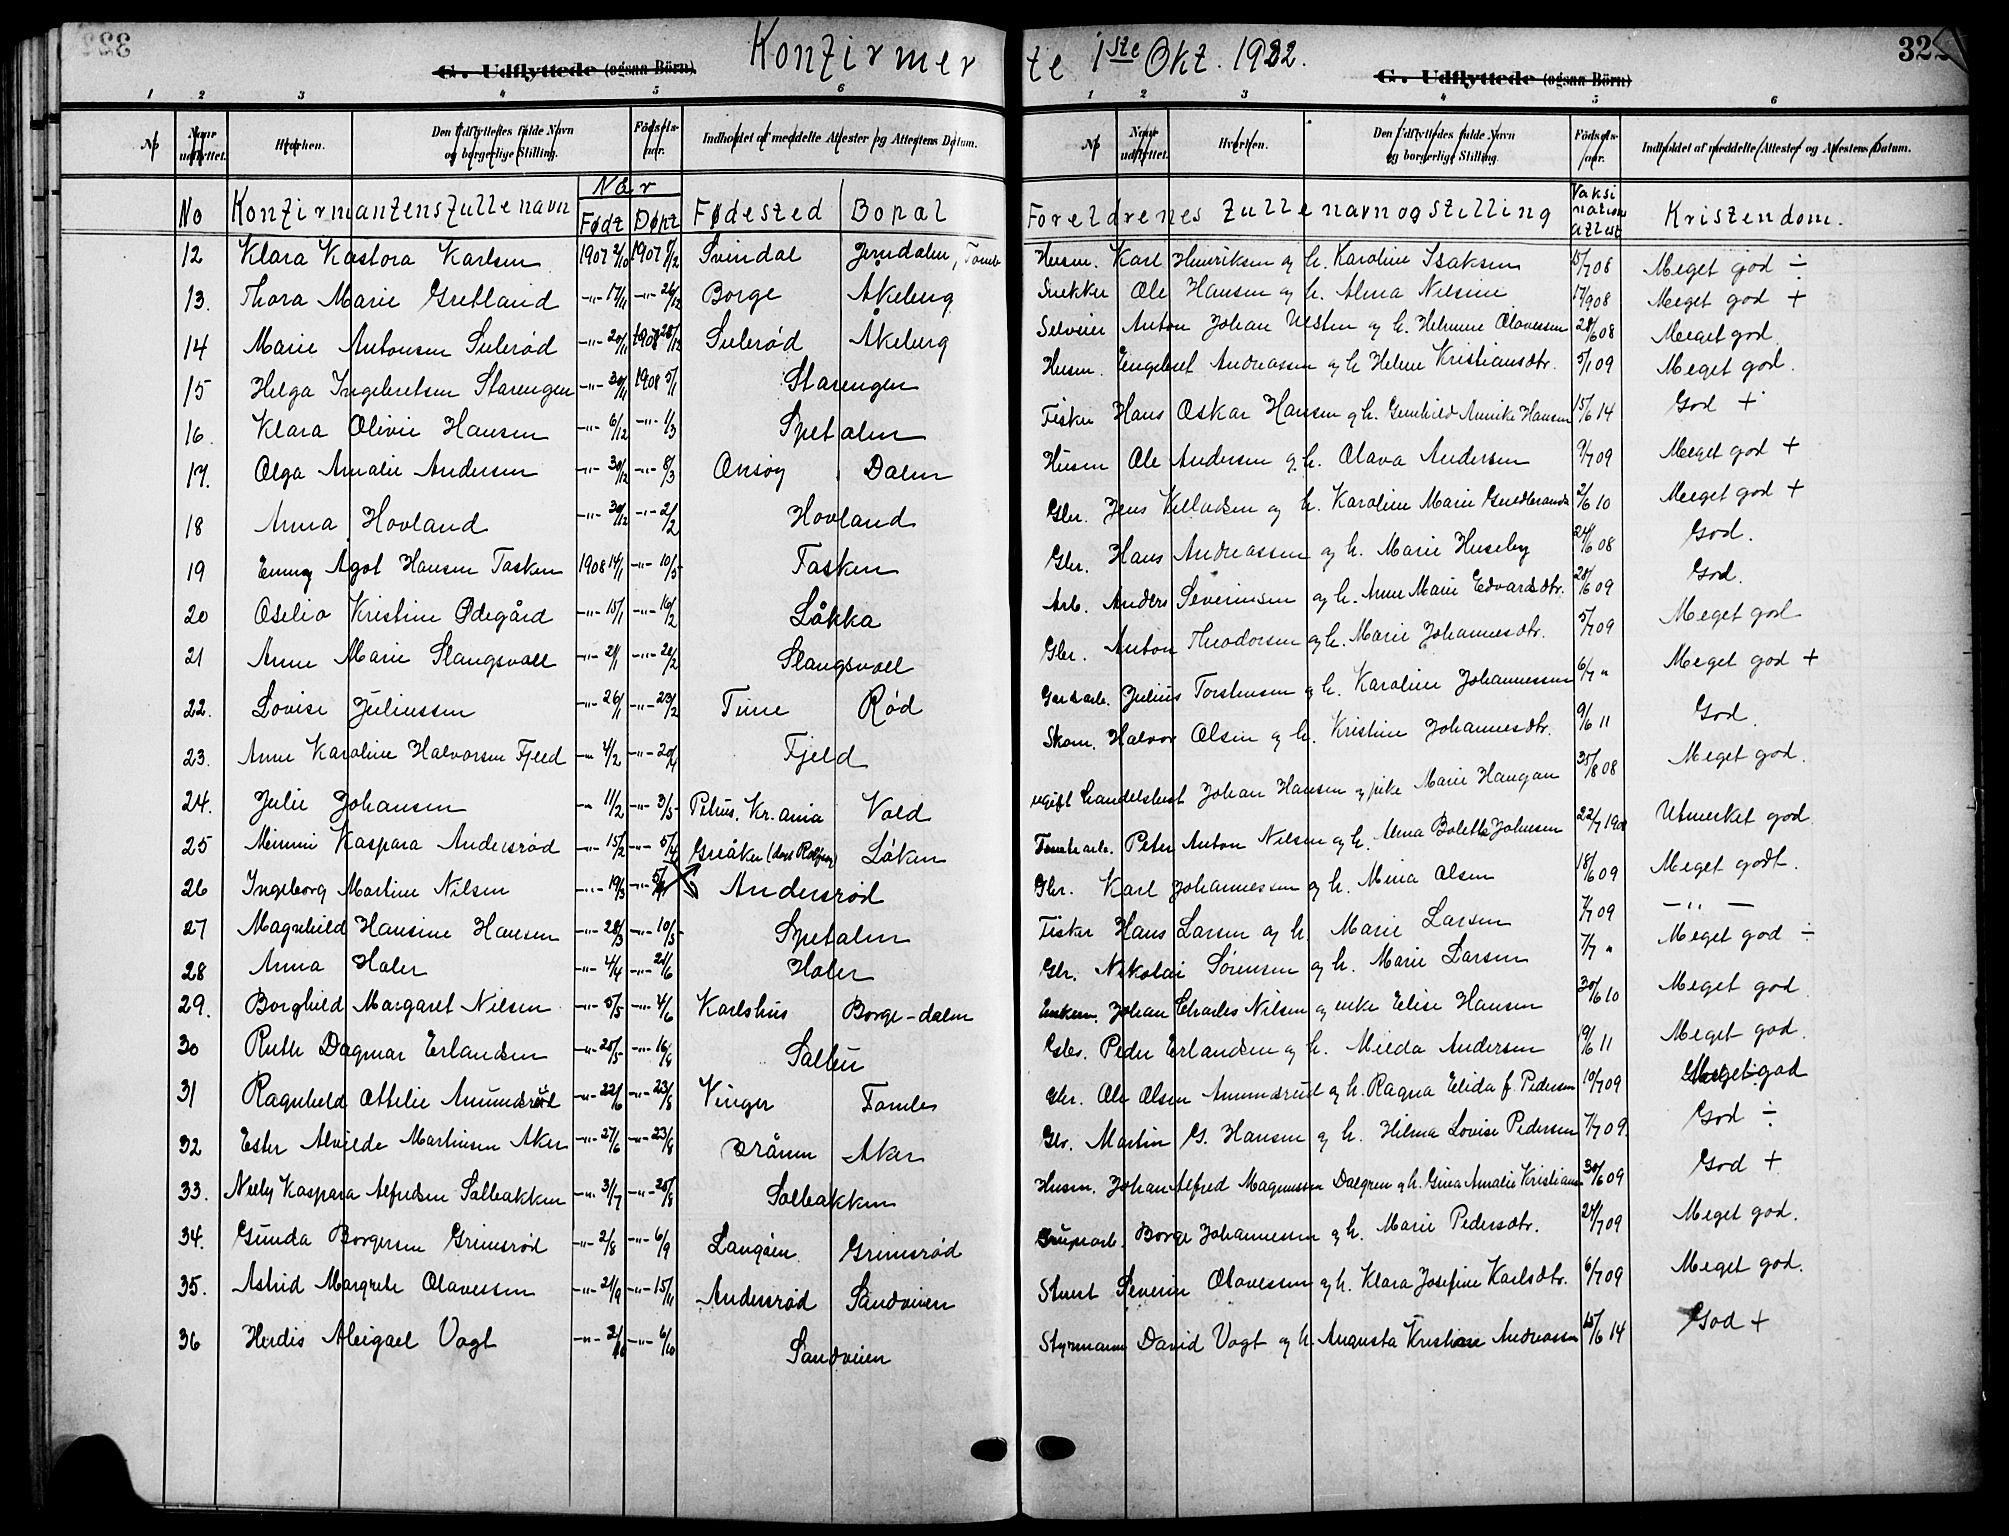 Konfirmerte 1ste Okt. 1922.
G. Udflyttede (ogsaa Börn).
G. Udflyttede (ogsaa Börn)
322
1 2 3 4 5 6
1 2 3 4 5 6
No Naar udflyttet. Hvorhen. Den Udflyttedes fulde Navn og borgerlige Stilling. Födsels-aar. Indholdet af meddelte Attester og Attestens Datum.
No Naar udflyttet. Hvorhen. Den Udflyttedes fulde Navn og borgerlige Stilling. Födsels-aar. Indholdet af meddelte Attester og Attestens Datum.
No Konfirmantens fulle navn Når Født Døpt Fødested Bopæl Foreldrenes fulle navn og stilling Vaksinationsattest Kristendom.
12 Klara Kastora Karlsen 1907 2/10 1907 8/12 Svindal Jerndalen, Tomb Husm. Karl Henriksen og h. Karoline Isaksen 15/7 08 Meget god ÷
13. Thora Marie Gretland -"- 17/11 -"- 26/12 Borge Åkeberg Snekker Ole Hansen og h. Alma Nilsine 17/9 08 Meget god +
14 Marie Antonsen Sulerød -"- 20/11 1907 28/12 Sulerød Åkeberg Selveier Anton Johan Nesten og h. Helmine Olavessen 28/6 08 Meget god
15 Helga Ingebretsen Starengen -"- 30/11 1908 5/1 Starengen Husm. Engebret Andreassen og h Helene Kristiansdtr. 5/1 09 Meget god.
16. Klara Olivie Hansen -"- 6/12 -"- 1/3 Spetalen Fisker Hans Oskar Hansen og h. Gunhild Annike Hansen 15/6 14 God +
17. Olga Amalie Andersen -"- 30/12 -"- 8/3 Onsøy Dalen Husm Ole Andersen og h. Olava Andersen 9/7 09 Meget god +
18 Anna Hovland -"- 30/12 -"- 2/2 Hovland Gbr. Jens Killadsen og h. Karoline Marie Guldbrands 2/6 10 Meget god +
19 Emmy Agot Hansen Tasken 1908 14/1 -"- 10/5 Tasken Gbr. Hans Andreassen og h. Marie Huseby 24/6 08 God.
20 Oselia Kristine Ødegård -"- 15/1 -"- 16/2 Låkka Arb. Anders Severinsen og h. Anne Marie Edvardsdtr. 28/6 09 God.
21 Anne Marie Slangsvoll -"- 21/1 -"- 21/2 Slangsvoll Gbr. Anton Theodorsen og h. Marie Johannesdtr. 5/7 09 Meget god
22. Lovise Juliussen -"- 26/1 -"- 23/2 Tune Rød Gardsarb. Julius Torstensen og h. Karoline Johannessen 6/7 " Meget god +
23. Anne Karoline Halvorsen Fjeld -"- 4/2 -"- 20/4 Fjeld Skom. Halvor Olsen og h. Kristine Johannesdtr. 9/6 11 God.
24. Julie Johansen -"- 11/2 -"- 3/5 Petrus. Kr.ania Vold ugift handelsbest Johan Hansen og pike Marie Haugan 25/8 08 Meget god.
25 Minni Kaspara Andersrød -"- 15/2 -"- 5/4 Greåker Låken Peter Anton Nilsen og h. Alma Bolette Johnsen 22/7 1908 Utmerket god.
26 Ingeborg Martine Nilsen -"- 19/3 -"- 5/4 Andersrød Gbr. Karl Johannessen og h. Mina Olsen 18/6 09 Meget godt.
27 Magnhild Hansine Hansen -"- 28/3 -"- 10/5 Spetalen Fisker Hans Larsen og h. Marie Larsen 7/7 09 -"-
28 Anna Haler -"- 4/4 -"- 21/6 Haler Gbr. Nikolai Sørensen og h. Marie Larsen 7/7 " Meget god ÷
29. Borghild Margaret Nilsen -"- 5/5 -"- 4/6 Karlshus Borge-dalen Johan Charles Nilsen og enke Elise Hansen 30/6 10 Meget god
30 Ruth Dagmar Erlandsen -"- 25/5 -"- 16/8 Saltu Gbr. Peder Erlandsen og h. Milda Andersen 19/6 11 Meget god.
31 Ragnhild Ottilie Amundsrød -"- 22/6 -"- 23/8 Vinger Tomb Gbr. Ole Olsen Amundsrud og h. Ragna Elida f. Pedersen 10/7 09 Meget god
32 Ester Alvilde Martinsen Aker -"- 27/6 -"- 23/8 Aker Gbr. Martin G. Hansen og h. Hilma Lovise Pedersen 7/7 09. God ÷
33. Nelly Kaspara Alfredsen Solbakken -"- 31/7 -"- 25/8 Solbakken Husm. Johan Alfred Magnussen Dalgren og h. Gina Amalie Kristians 30/6 09 God +
34. Gunda Borgersen Grimsrød -"- 2/8 -"- 6/9 Langøen Grimsrød Borge Johannessen og h. Marie Pedersdtr. 24/7 09 Meget god.
35. Astrid Margrete Olavessen -"- 21/9 -"- 15/11 Andersrød Sandveien Stuert Severin Olavessen og h. Klara Josefine Karlsdtr. 6/7 09 Meget god.
36 Herdis Abigael Vogt -"- 2/10 -"- 6/10 Sandveien Styrmann David Vogt og h. Augusta Kristine Andreassen 15/6 14 God +